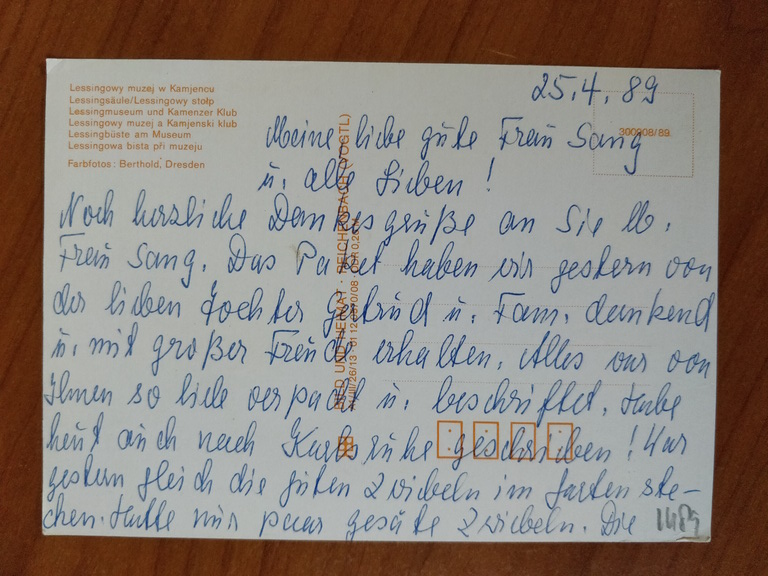 Lessingowy muzej w Kamjencu
Lessingsäule/Lessingowy stołp
Lessingmuseum und Kamenzer Klub
Lessingowy muzej a Kamjenski klub
Lessingbüste am Museum
Lessingowa bista při muzeju
Farbfotos: Berthold, Dresden
300908/89
BILD UND HEIMAT · REICHENBACH (VOGTL)
25.4.89
Meine liebe gute Frau Sang
u. alle Lieben!
Noch herzliche Dankesgrüße an Sie lb.
Frau Sang. Das Paket haben wir gestern von
der lieben Tochter Gertrud u. Fam. dankend
u. mit großer Freude erhalten. Alles war von
Ihnen so liebe verpackt u. beschriftet. Habe
heut auch nach Karlsruhe geschrieben! War
gestern gleich die guten Zwiebeln im Garten ste-
chen. Hatte nur paar gesäte Zwiebeln. Die
1489